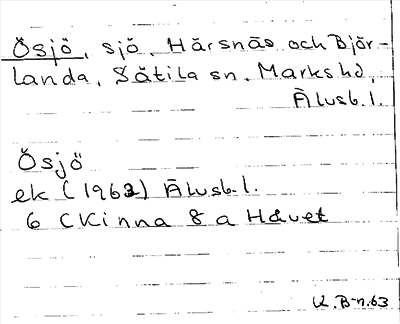 Ösjö, sjö, Härsnäs och Björ-
landa, Sätila sn. Marks hd,
Älvsb.l.
Ösjö
ek (1962) Älvsb.l.
6 C Kinna 8 a Havet
K.B-n.63